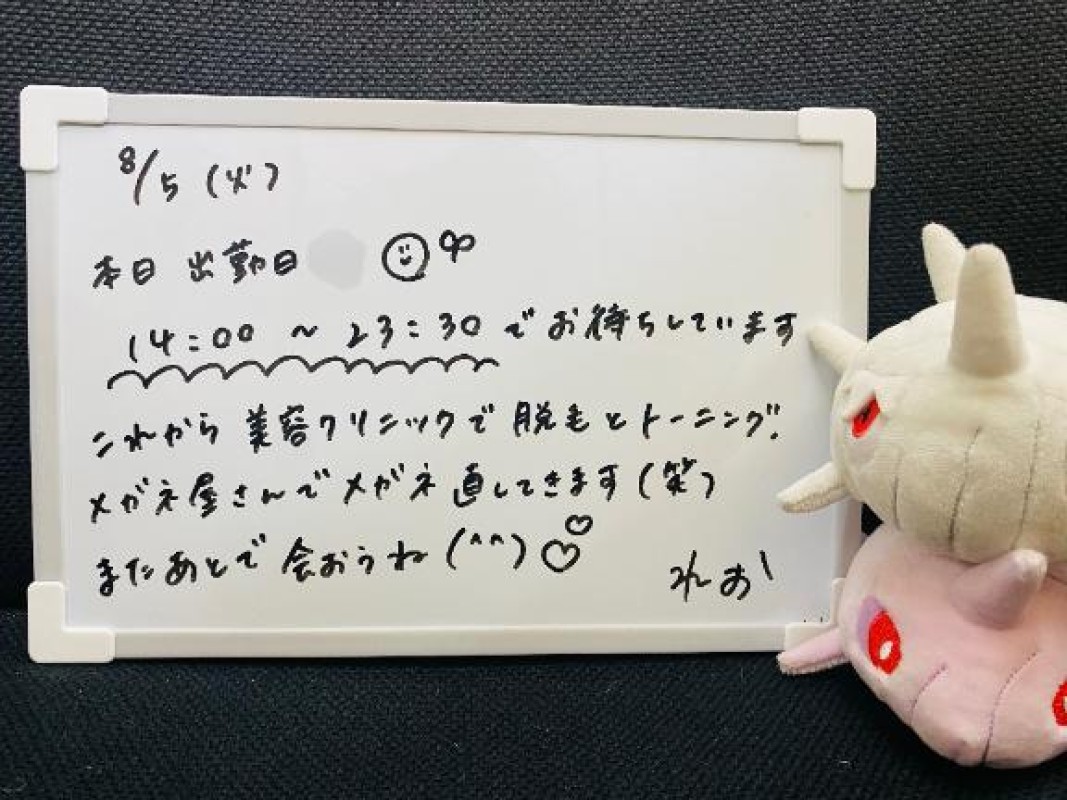 8/5 (火)
本日 出勤日
14:00 ~ 23:30 でお待ちしています
これから 美容クリニックで 脱毛とトーニング!
メガネ屋さんでメガネ 直してきます(笑)
またあとで 会おうね (^^)♡♡
れお